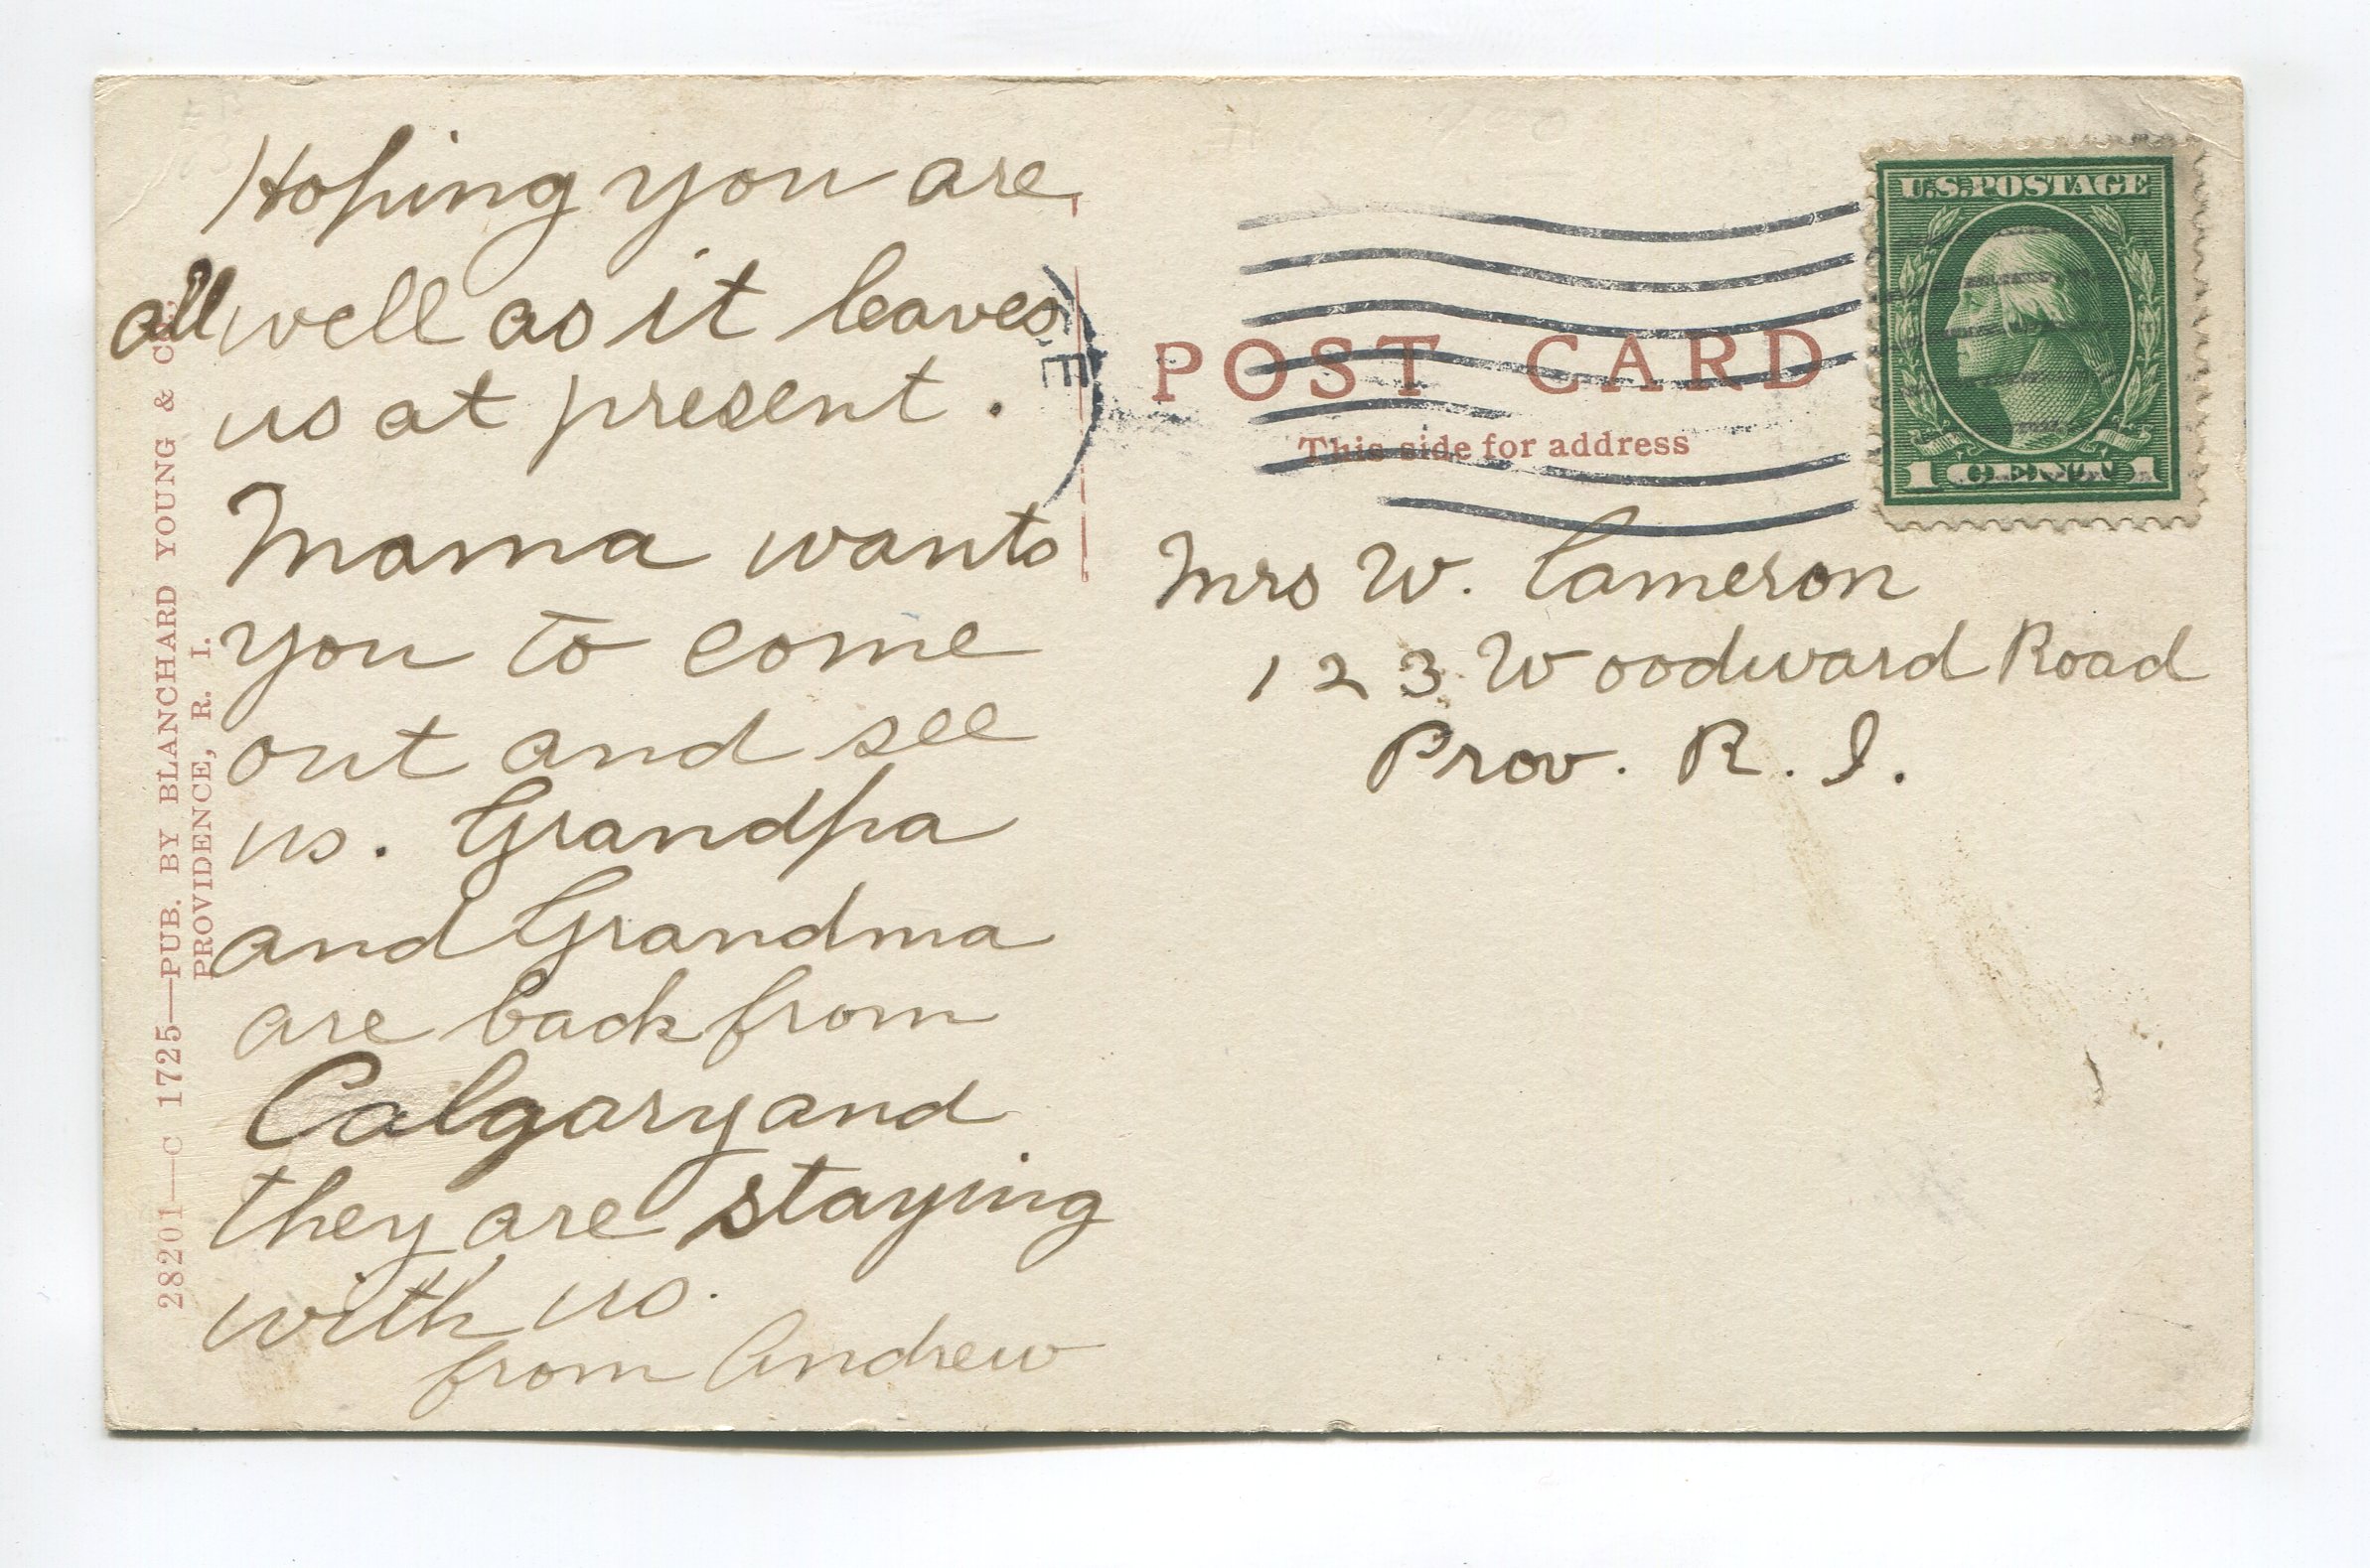 Hoping you are
all well as it leaves
us at present.
Mama wants
you to come
out and see
us. Grandpa
and Grandma
are back from
Calgary and
they are staying
with us.
from Andrew
28201—C 1725—PUB. BY BLANCHARD YOUNG & CO.,
PROVIDENCE, R. I.
POST CARD
This side for address
U.S. POSTAGE
1 CENT 1
Mrs W. Cameron
123 Woodward Road
Prov. R. I.